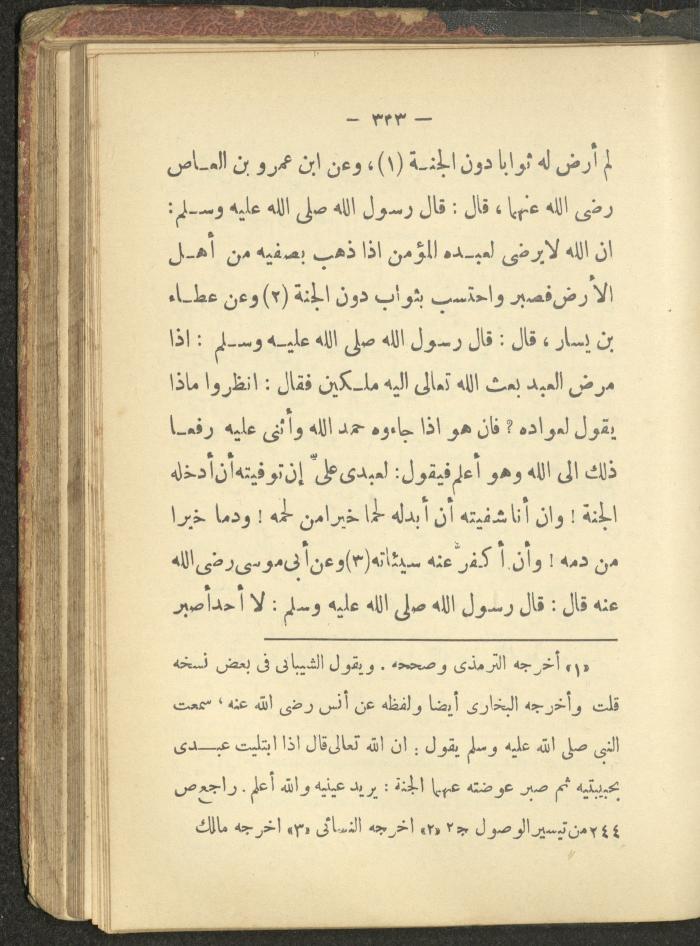 — ٣٢٣ —
لم أرض له ثوابا دون الجنـة (١)، وعن ابن عمرو بن العـاص
رضى الله عنهما، قال : قال رسول الله صلى الله عليه وسـلم:
ان الله لايرضى لعبـده المؤمن اذا ذهب بصفيه من أهـل
الأرض فصبر واحتسب بثواب دون الجنة (٢) وعن عطـاء
بن يسار، قال : قال رسول الله صلى الله عليـه وسـلم : اذا
مرض العبد بعث الله تعالى اليه ملـكين فقال : انظروا ماذا
يقول لعواده ? فان هو اذا جاءوه حمد الله وأثنى عليه رفعـا
ذلك الى الله وهو أعلم فيقول: لعبدى علىّ إن توفيته أن أدخله
الجنة ! وان أنا شفيته أن أبدله لحما خيرا من لحمه ! ودما خيرا
من دمه ! وأن أكفرّ عنه سيئاته (٣) وعن أبى موسى رضى الله
عنه قال : قال رسول الله صلى الله عليه وسلم : لا أحد أصبر
«١» أخرجه الترمذى وصححه . ويقول الشيبانى فى بعض نسخه
قلت وأخرجه البخارى أيضا ولفظه عن أنس رضى الله عنه، سمعت
النبى صلى الله عليه وسلم يقول : ان الله تعالى قال اذا ابتليت عبـدى
بحبيبتيه ثم صبر عوضته عنهما الجنة : يريد عينيه والله أعلم . راجع ص
٢٤٤ من تيسير الوصول ج٢ «٢» اخرجه النسائى «٣» اخرجه مالك